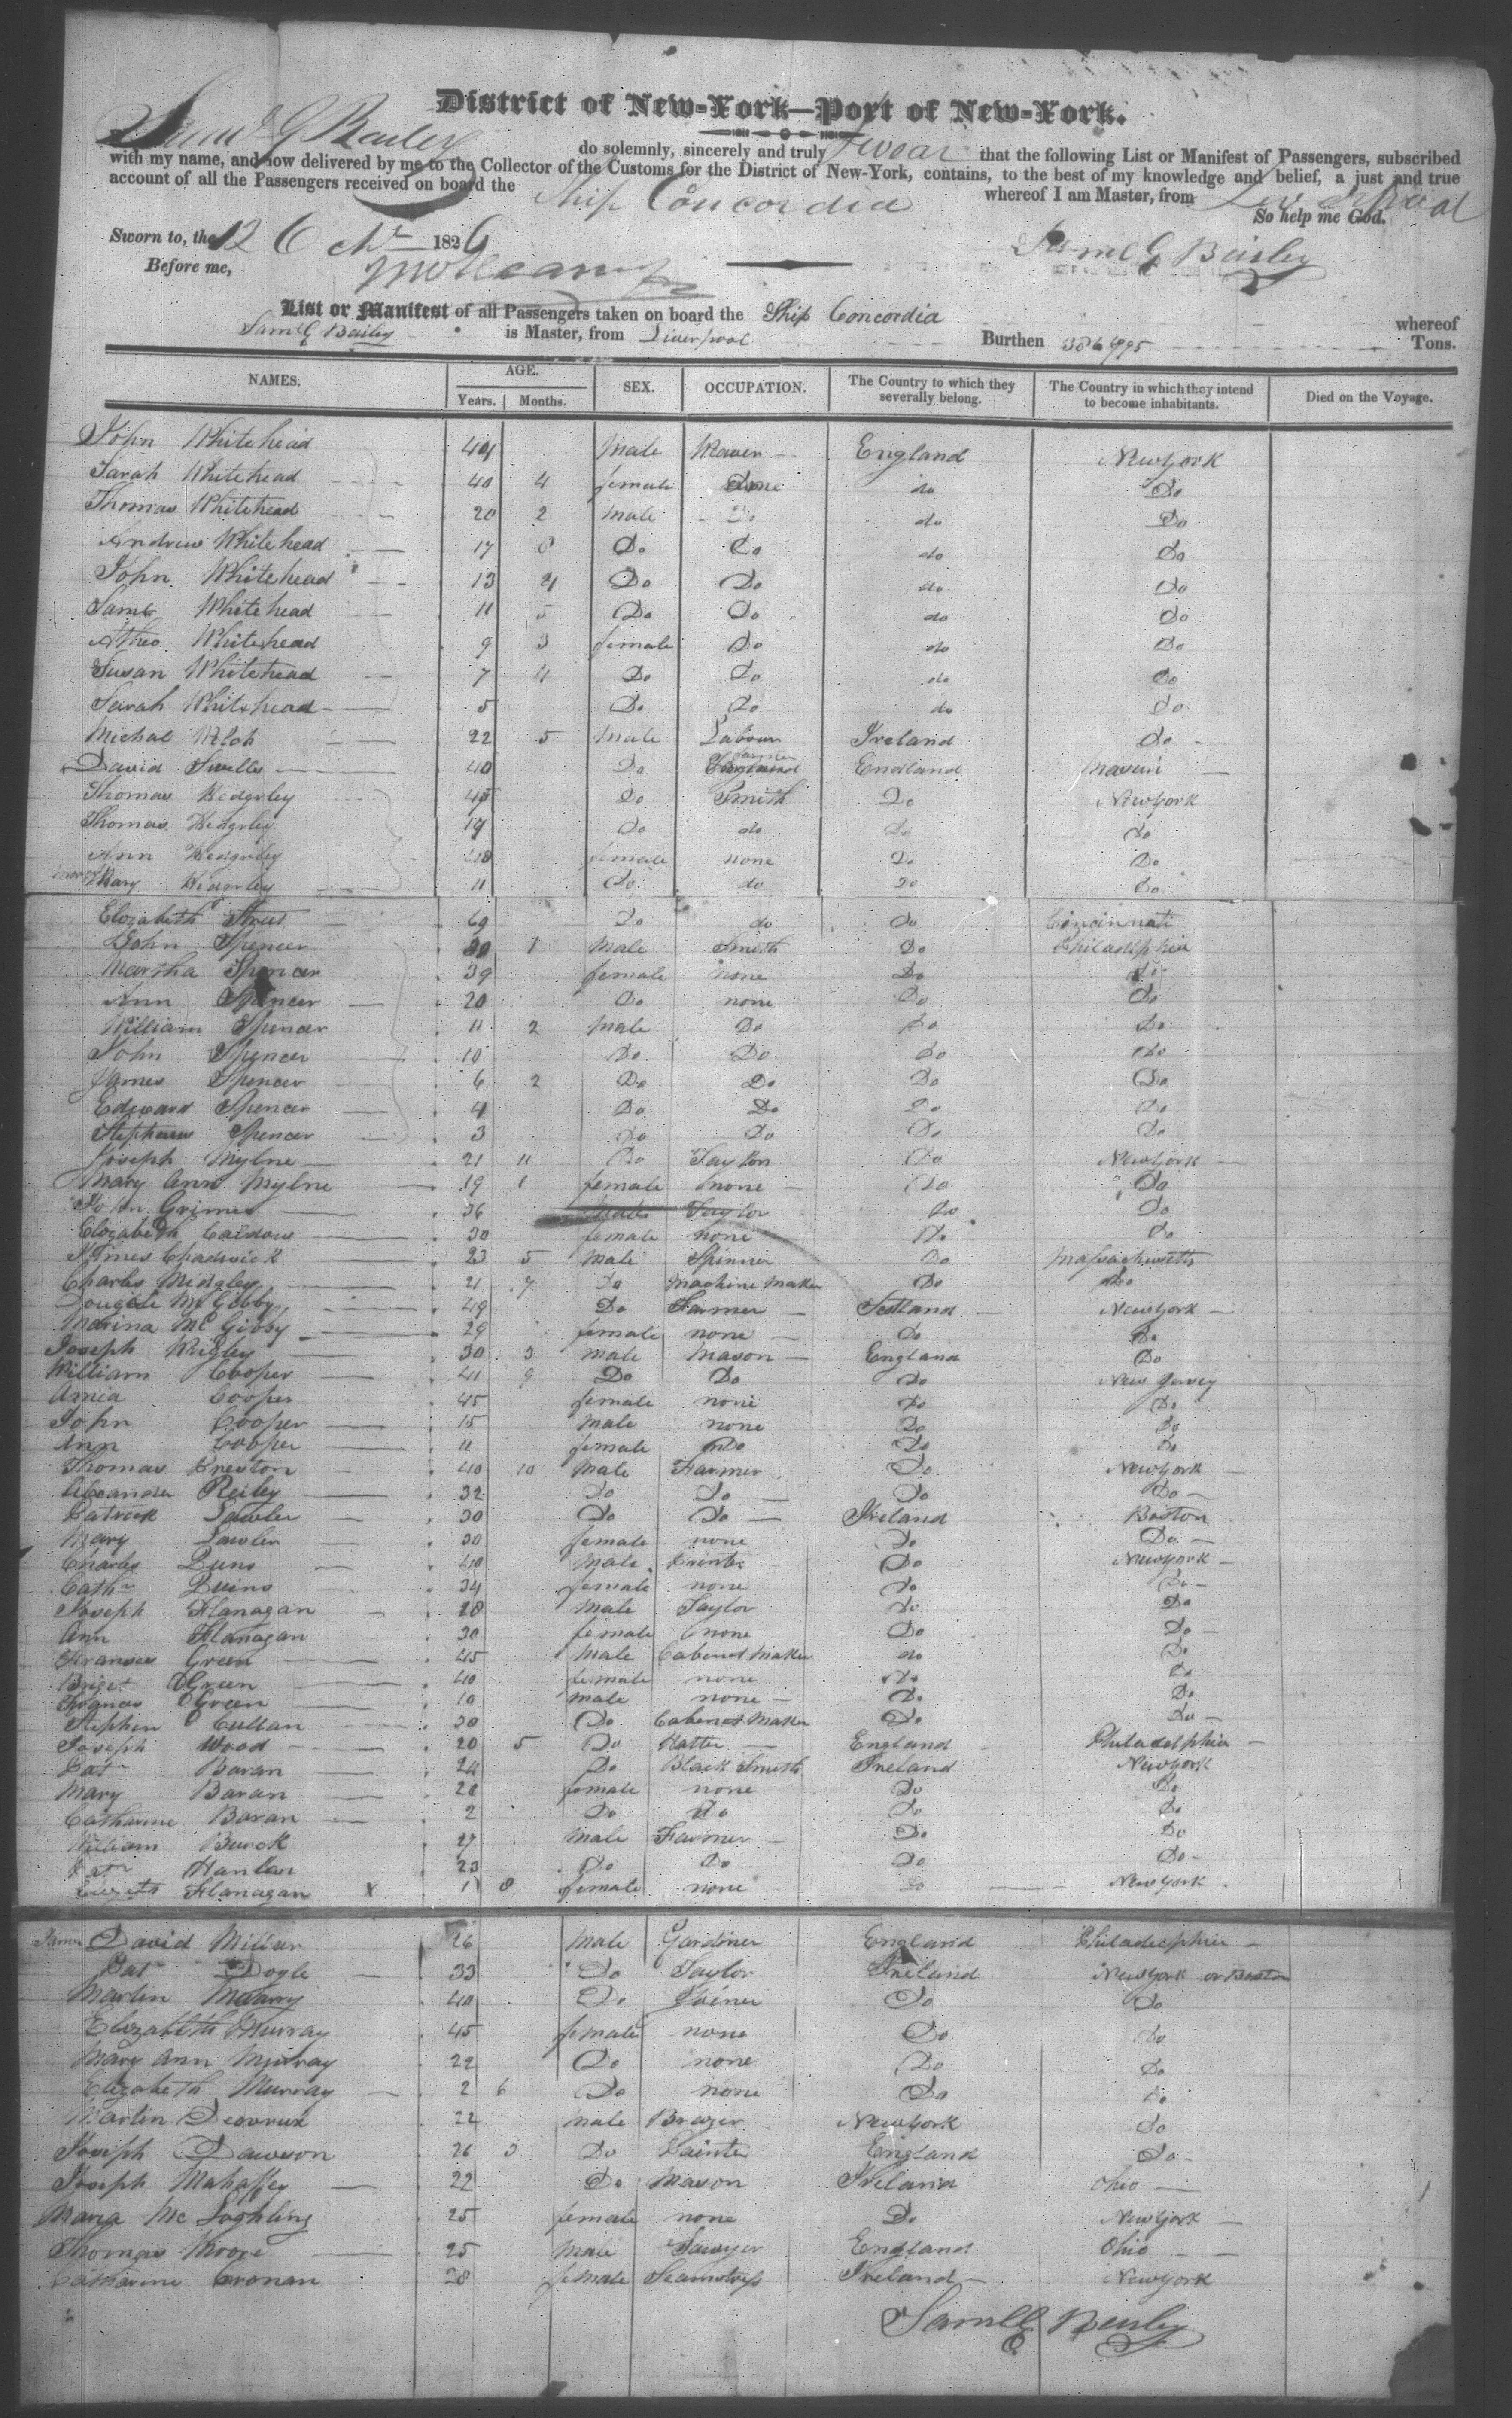 District of New-York—Port of New-York.
Saml G Bailey do solemnly, sincerely and truly swear that the following List or Manifest of Passengers, subscribed
with my name, and now delivered by me to the Collector of the Customs for the District of New-York, contains, to the best of my knowledge and belief, a just and true
account of all the Passengers received on board the Ship Concordia whereof I am Master, from Liverpool
So help me God.
Sworn to, the 12 Octr 1826 Saml G Bailey
Before me,
List or Manifest of all Passengers taken on board the Ship Concordia whereof
Saml G Bailey is Master, from Liverpool Burthen Tons.
NAMES. AGE. Years. Months. SEX. OCCUPATION. The Country to which they severally belong. The Country in which they intend to become inhabitants. Died on the Voyage.
John Whitehead 44 Male Weaver England New York
Sarah Whitehead 40 4 female None do Do
Thomas Whitehead 20 2 Male Do do Do
Andrew Whitehead 17 8 Do Do do Do
John Whitehead 13 4 Do Do do Do
Whitehead 11 5 Do Do do Do
Whitehead 9 3 female Do do Do
Susan Whitehead 7 4 Do Do do Do
Sarah Whitehead 5 Do Do do Do
Michal Welch 22 5 Male Labour Ireland Do
David 40 Do England
Thomas 45 Do Smith Do New York
Thomas 19 Do do Do do
Ann female none Do Do
Mary 11 Do do Do Do
Elizabeth 69 Do do do Cincinnati
John Spencer 1 Male Smith Do Philadelphia
Martha Spencer 39 female none Do do
Ann Spencer 20 Do none Do Do
William Spencer 11 2 Male Do Do Do
John Spencer 10 Do Do Do Do
James Spencer 6 2 Do Do Do Do
Edward Spencer 4 Do Do Do Do
Spencer 3 Do Do Do Do
Joseph Mylne 21 11 Do Taylor Do New York
Mary Ann Mylne 19 1 female none Do Do
John Grimes 36 Male Taylor Do Do
Elizabeth 30 female none Do Do
James Chadwick 23 5 Male Spinner Do Massachusetts
Charles Midgley 21 7 Do Machine Maker Do Do
McGibby 49 Do Farmer Scotland New York
McGibby 29 female none do Do
Joseph Wrigley 30 3 male Mason England Do
William Cooper 41 9 Do Do Do New Jersey
Cooper 45 female none Do Do
John Cooper 15 Male none Do Do
Ann Cooper 11 female Do Do Do
Thomas Preston 40 10 Male Farmer Do New York
Reiley 32 Do Do Do Do
Patrick Lawler 30 Do Do Ireland Boston
Mary Lawler 30 female none Do Do
Charles 40 Male Do New York
Cathn 34 female none Do Do
Joseph Flanagan 28 Male Taylor Do Do
Ann Flanagan 30 female none Do Do
Green 45 Male Cabenet Maker do Do
Green 40 female none Do Do
Green 10 male none Do Do
Stephen Cullan 30 Do Cabenet Maker Do Do
Joseph Wood 20 5 Do Hatter England Philadelphia
Patn Baran 24 Do Black Smith Ireland New York
Mary Baran 20 female none Do Do
Catharine Baran 2 Do Do Do Do
William Burck 27 Male Farmer Do Do
Patn Hanlan 23 Do Do Do Do
Flanagan X 1 8 female none Do New York
David Miller 26 Male Gardiner England Philadelphia
Pat Dogle 33 Do Taylor Ireland New York or Boston
Martin Murray 40 Do Joiner Do Do
Elizabeth Murray 45 female none Do Do
Mary Ann Murray 22 Do none Do Do
Elizabeth Murray 2 6 Do none Do Do
Martin 22 Male Brazer New York Do
Joseph Dawson 26 3 Do Painter England Do
Joseph Mahaffey 22 Do Mason Ireland Ohio
Maria Mc Loghling 25 female none Do New York
Thomas Moore 25 Male Sawyer England Ohio
Catharine Cronan 28 female Seamstress Ireland New York
Saml G Bailey